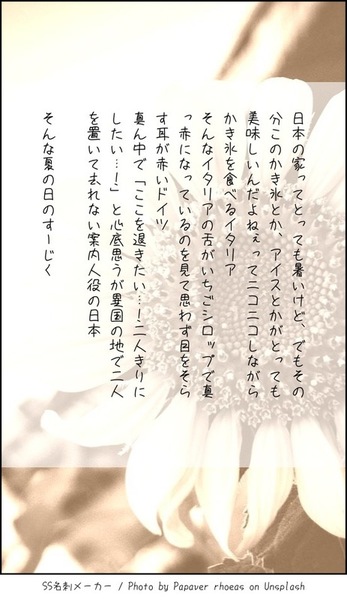 日本の家ってとっても暑いけど、でもその
分このかき氷とか、アイスとかがとっても
美味しいんだよねぇってニコニコしながら
かき氷を食べるイタリア
そんなイタリアの舌がいちごシロップで真
っ赤になっているのを見て思わず目をそら
す耳が赤いドイツ
真ん中で「ここを退きたい…!二人きりに
したい…!」と心底思うが異国の地で二人
を置いて去れない案内人役の日本
そんな夏の日のすーじく
SS名刺メーカー / Photo by Papaver rhoeas on Unsplash